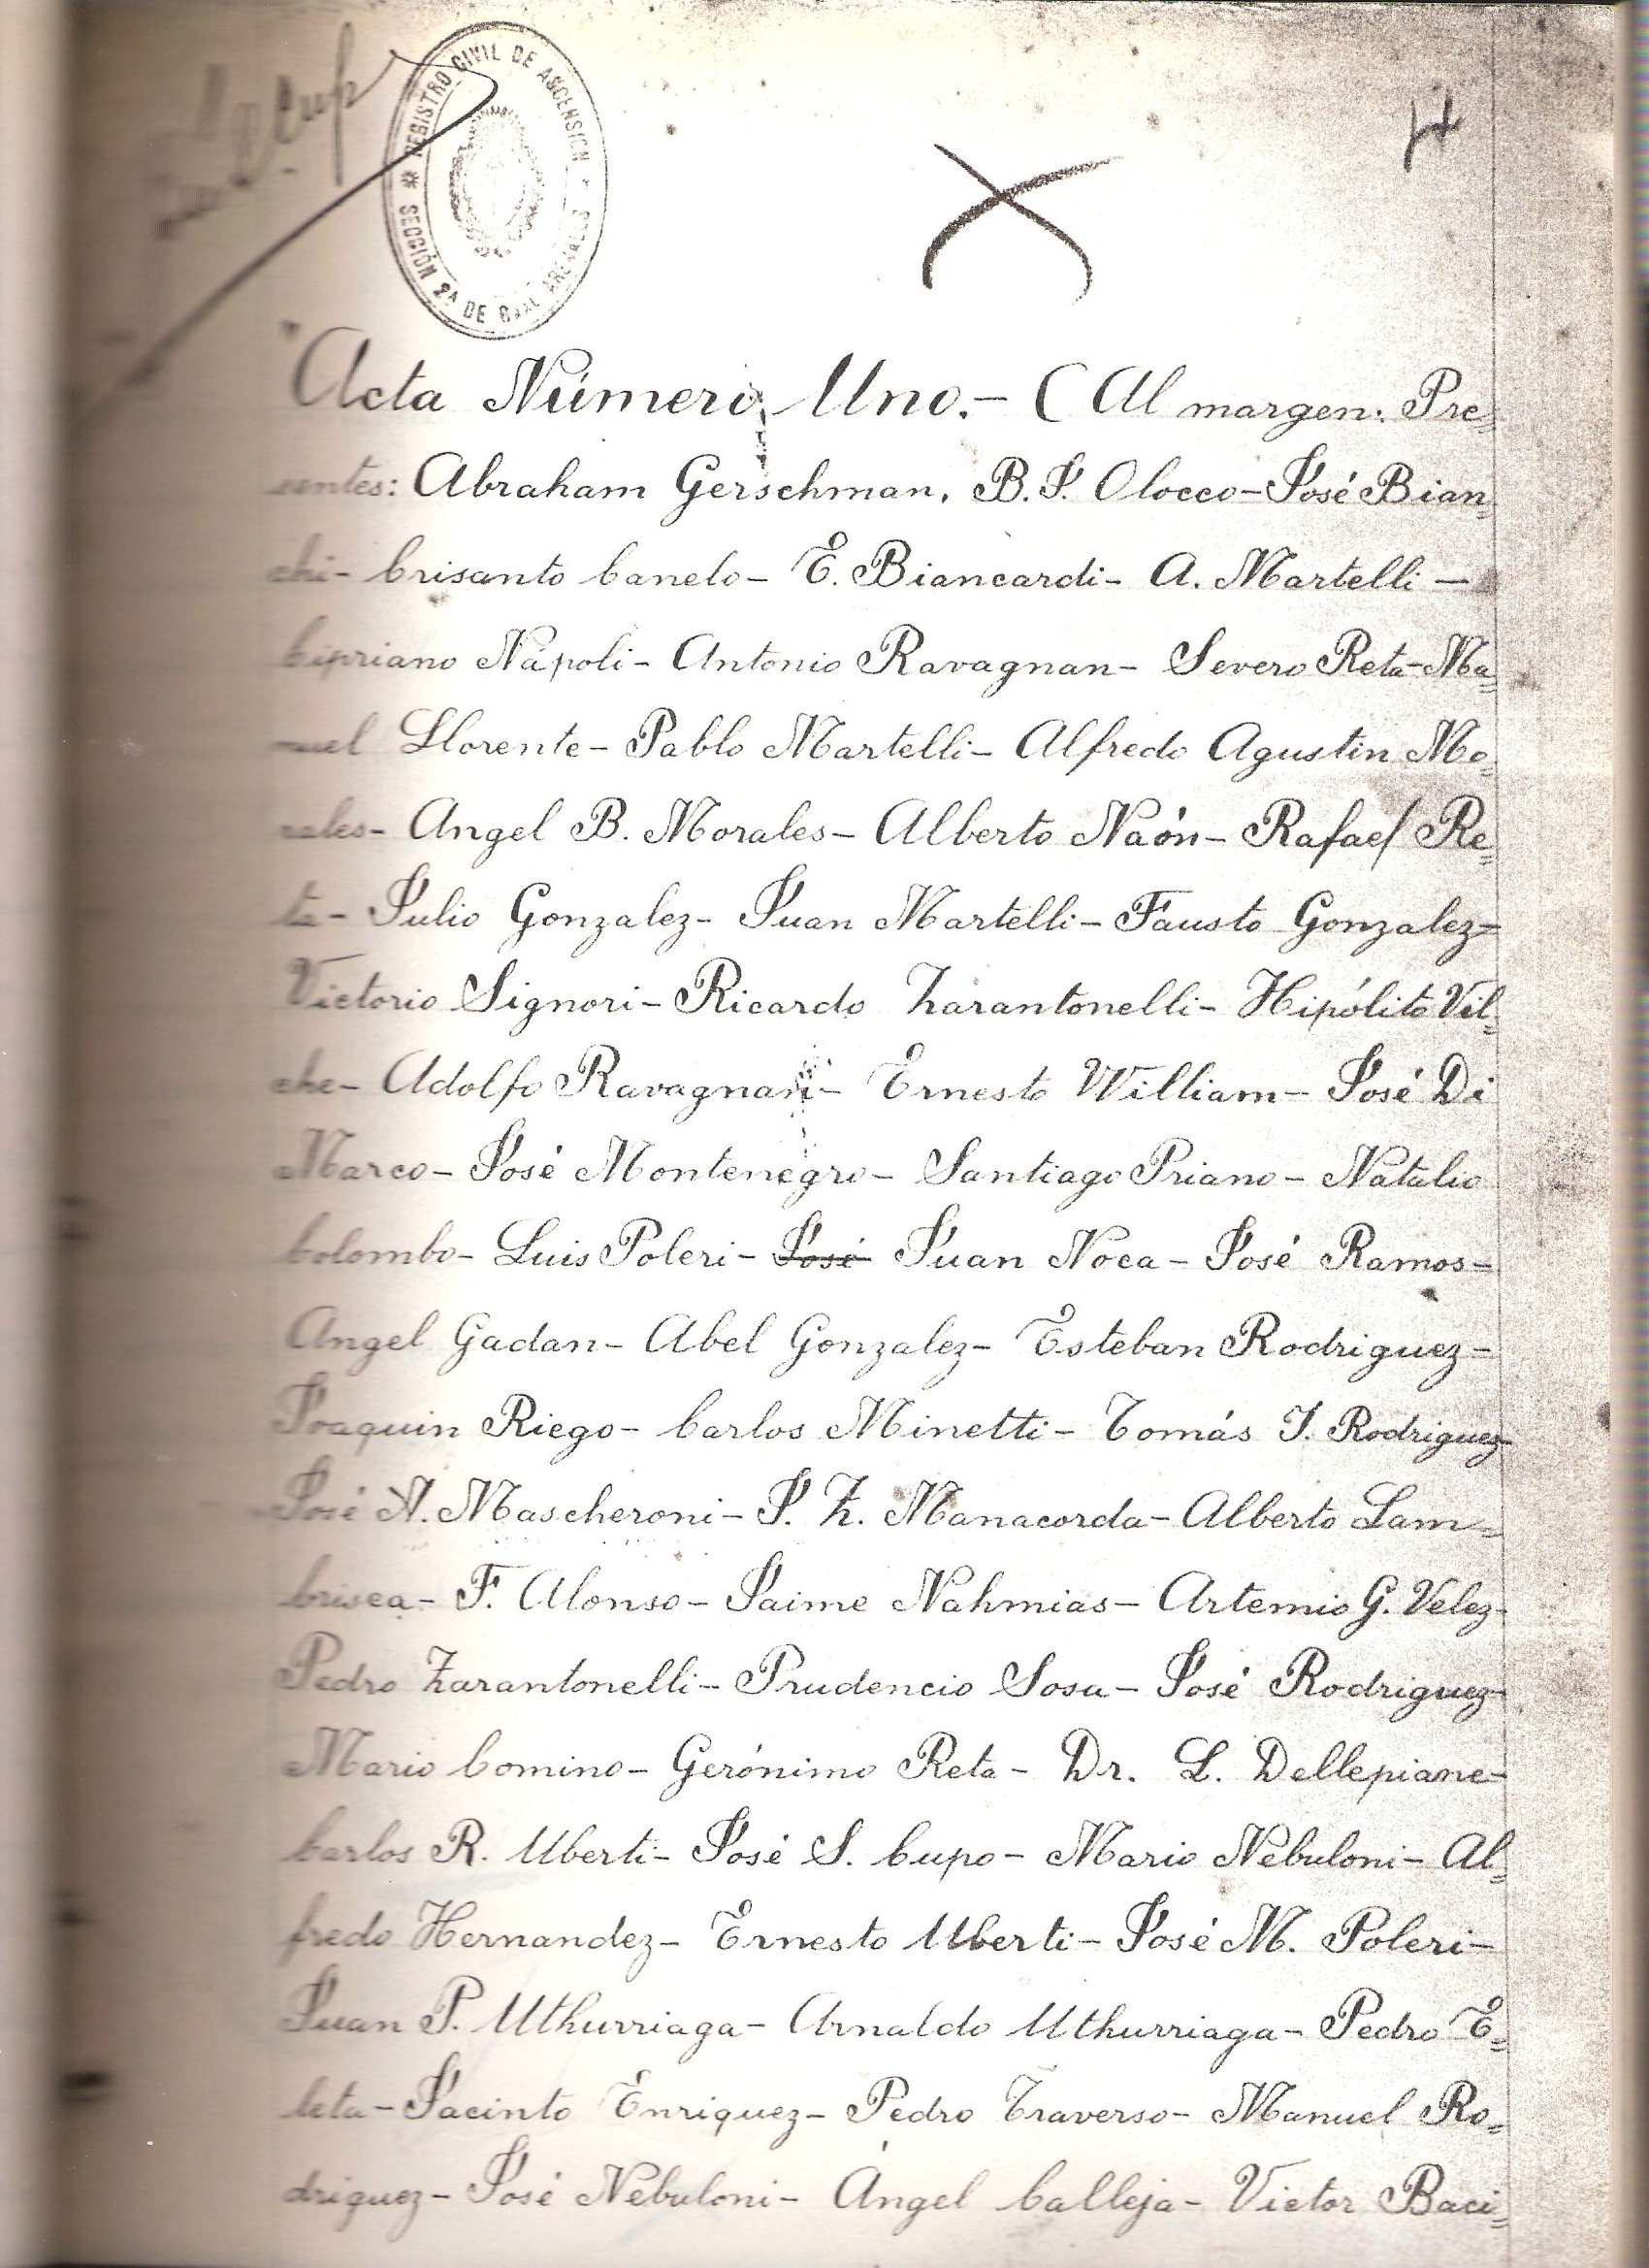 REGISTRO CIVIL DE ASCENSION
SECCIÓN 2ª DE GRAL ARENALES
"Acta Número Uno.- (Al margen: Pre=
sentes: Abraham Gerschman, B. J. Olocco- José Bian=
chi- Crisanto Canelo- E. Biancardi- A. Martelli-
Cipriano Nápoli- Antonio Ravagnan- Severo Reta- Ma=
nuel Llorente- Pablo Martelli- Alfredo Agustin Mo=
rales- Angel B. Morales- Alberto Naón- Rafael Re=
ta- Julio Gonzalez- Juan Martelli- Fausto Gonzalez-
Victorio Signori- Ricardo Zarantonelli- Hipólito Vil=
che- Adolfo Ravagnan- Ernesto William- José Di
Marco- José Montenegro- Santiago Priano- Natalio
Colombo- Luis Poleri- José Juan Noca- José Ramos-
Angel Gadan- Abel Gonzalez- Esteban Rodriguez-
Joaquin Riego- Carlos Minetti- Tomás J. Rodriguez-
José A. Mascheroni- J. Z. Manacorda- Alberto Lam=
brisca- F. Alonso- Jaime Nahmias- Artemio G. Velez-
Pedro Zarantonelli- Prudencio Sosa- José Rodriguez-
Mario Comino- Gerónimo Reta- Dr. L. Dellepiane-
Carlos R. Uberti- José S. Cupo- Mario Nebuloni- Al=
fredo Hernandez- Ernesto Uberti- José M. Poleri-
Juan P. Uthurriaga- Arnaldo Uthurriaga- Pedro E=
leta- Jacinto Enriquez- Pedro Traverso- Manuel Ro=
driguez- José Nebuloni- Ángel Calleja- Victor Baci=